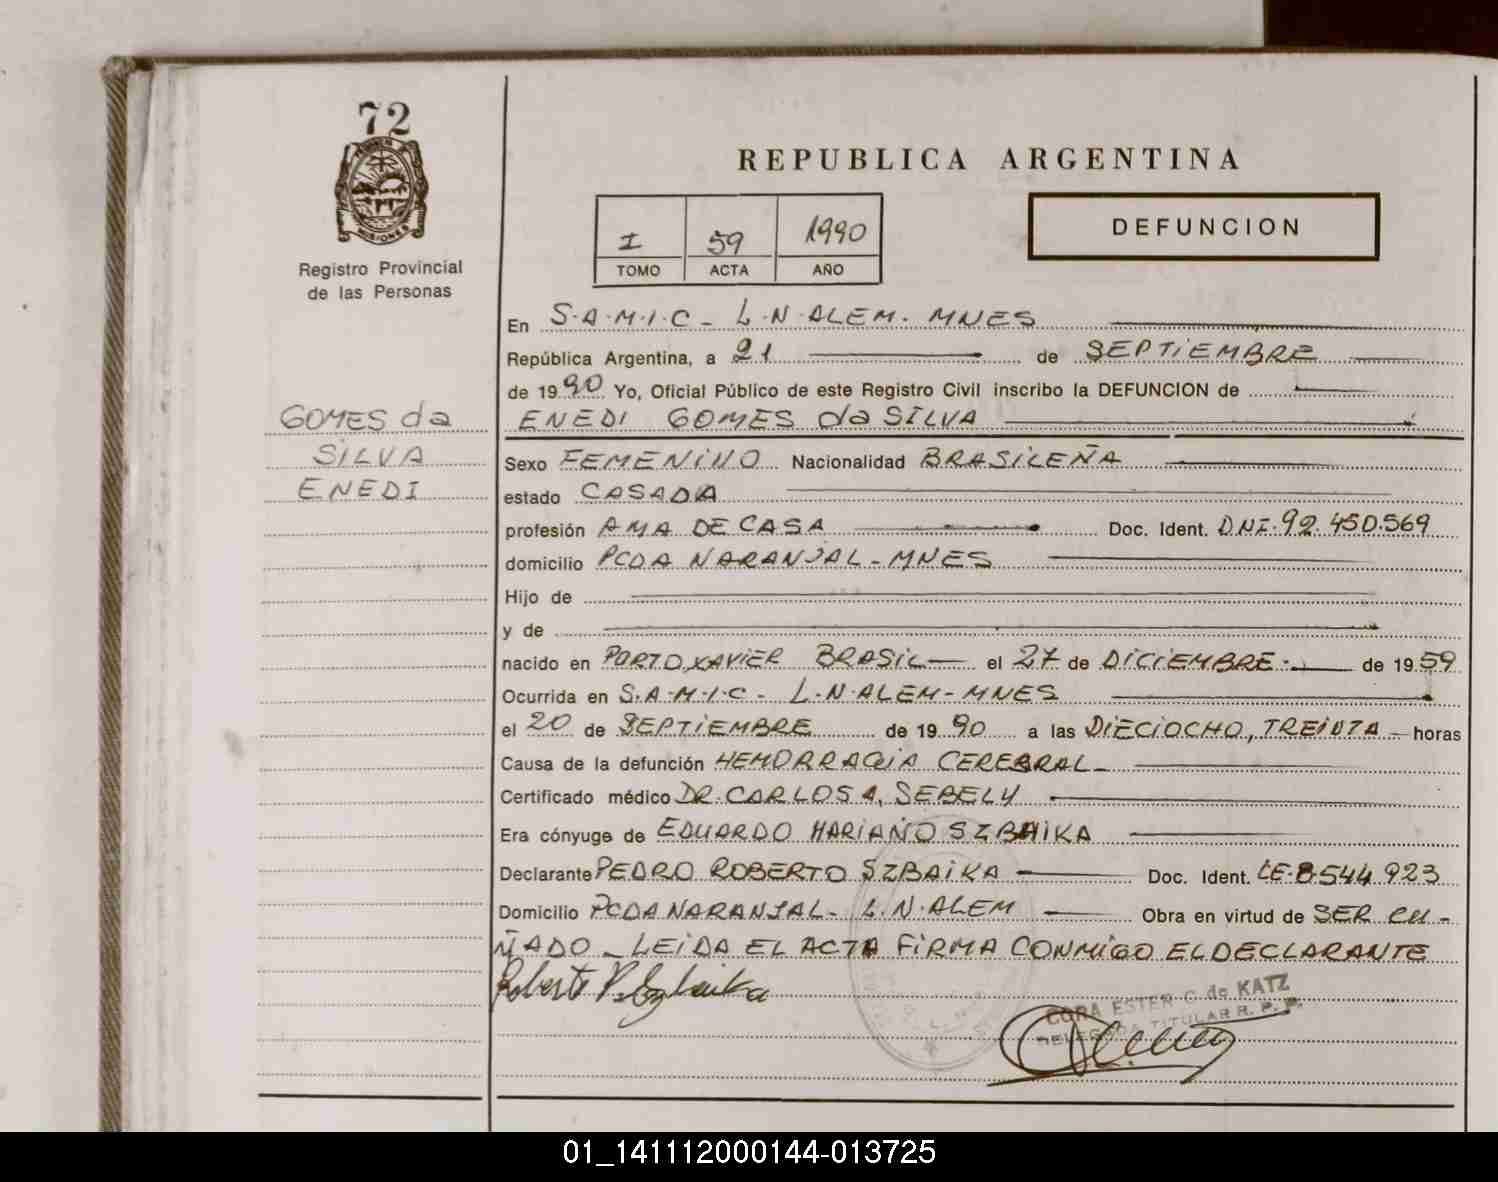 72
MISIONES
Registro Provincial
de las Personas
REPUBLICA ARGENTINA
I 59 1990
TOMO ACTA AÑO
DEFUNCION
GOMES da
SILVA
ENEDI
En S.A.M.I.C - L.N.ALEM. MNES
República Argentina, a 21 de SEPTIEMBRE
de 1990 Yo, Oficial Público de este Registro Civil inscribo la DEFUNCION de
ENEDI GOMES da SILVA
Sexo FEMENINO Nacionalidad BRASILEÑA
estado CASADA
profesión AMA DE CASA Doc. Ident. DNI.92.450.569
domicilio PCDA NARANJAL - MNES
Hijo de
y de
nacido en PORTO XAVIER BRASIL el 27 de DICIEMBRE. de 1959
Ocurrida en S.A.M.I.C - L.N.ALEM-MNES
el 20 de SEPTIEMBRE de 1990 a las DIECIOCHO, TREINTA horas
Causa de la defunción HEMORRAGIA CEREBRAL
Certificado médico DR. CARLOS A. SEBELY
Era cónyuge de EDUARDO MARIANO SZBAIKA
Declarante PEDRO ROBERTO SZBAIKA Doc. Ident. LE.8.544.923
Domicilio PCDA NARANJAL - L.N.ALEM Obra en virtud de SER CU-
ÑADO - LEIDA EL ACTA FIRMA CONMIGO EL DECLARANTE
Roberto P. Szbaika
CORA ESTER C. de KATZ
DELEGADA TITULAR R. P. P.
01_141112000144-013725